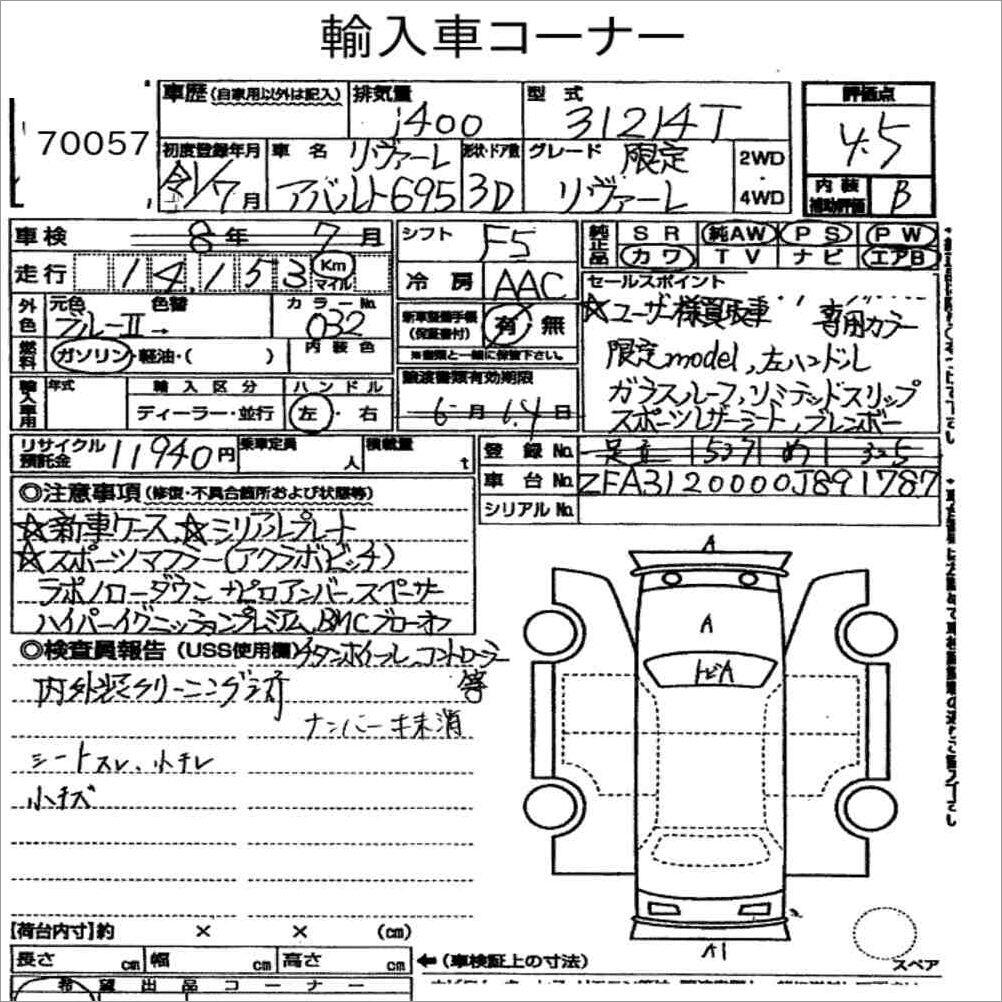 輸入車コーナー
70057
車歴(自家用以外は記入) 排気量 型式 評価点
1400 31214T 4.5
初度登録年月 車名 リヴァーレ 形状・ドア数 グレード 限定 2WD・4WD
令1/7月 アバルト695 3D リヴァーレ
内装補助評価 B
車検 8年 7月
シフト F5
純正品 SR 純AW PS PW
カワ TV ナビ エアB
走行 14,153 Km マイル
冷房 AAC
セールスポイント
外色 元色 色替 カラーNo.
ブルーII→ 032
新車整備手帳(保証書付) 有・無
※書類と一緒に保管下さい。
☆ユーザー様買取車 専用カラー
限定model,左ハンドル
ガラスルーフ,リミテッドスリップ
スポーツレザーシート,ブレンボー
燃料 ガソリン・軽油・( ) 内装色
譲渡書類有効期限
6月14日
輸入車用 年式 輸入区分 ハンドル
ディーラー・並行 左・右
リサイクル預託金 11940円 乗車定員 人 積載量 t
登録No. 足立 537 め 325
車台No. ZFA3120000J891787
シリアルNo.
◎注意事項(修復・不具合箇所および状態等)
☆新車ケース,☆シリアルプレート
☆スポーツマフラー(アクラポビッチ)
ラポノローダウン サビロアンバースペーサー
ハイパーイグニッションプレミアム,BMCブローオフ
◎検査員報告(USS使用欄) チタンホイール,コントローラー
内外装クリーニング済 等
ナンバーキ未消
シートスレ、小キレ
小キズ
A
A
トビA
A1
スペア
【荷台内寸】約 × × (cm)
長さ cm 幅 cm 高さ cm ←(車検証上の寸法)
希望出品コーナー